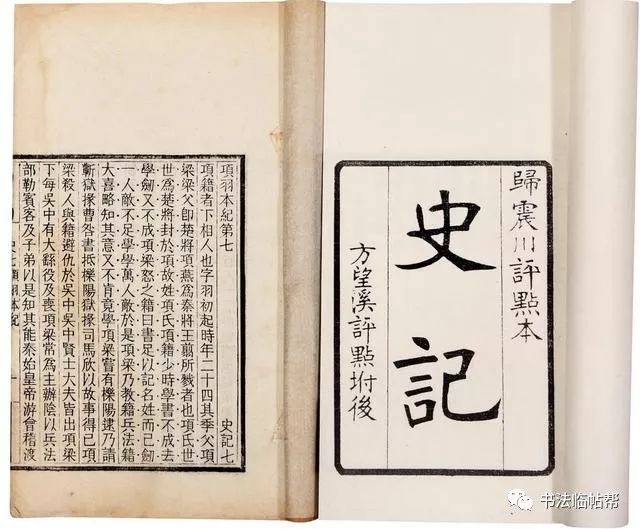 歸震川評點本
史記
方望溪評點坿後
項羽本紀第七
史記七
項籍者下相人也字羽初起時年二十四其季父項
梁梁父卽楚將項燕爲秦將王翦所戮者也項氏世
世爲楚將封於項故姓項氏項籍少時學書不成去
學劍又不成項梁怒之籍曰書足以記名姓而已劍
一人敵不足學學萬人敵於是項梁乃教籍兵法籍
大喜略知其意又不肯竟學項梁嘗有櫟陽逮乃請
蘄獄掾曹咎書抵櫟陽獄掾司馬欣以故事得已項
梁殺人與籍避仇於吳中吳中賢士大夫皆出項梁
下每吳中有大繇役及喪項梁常爲主辦陰以兵法
部勒賓客及子弟以是知其能秦始皇帝游會稽渡
書法临帖帮